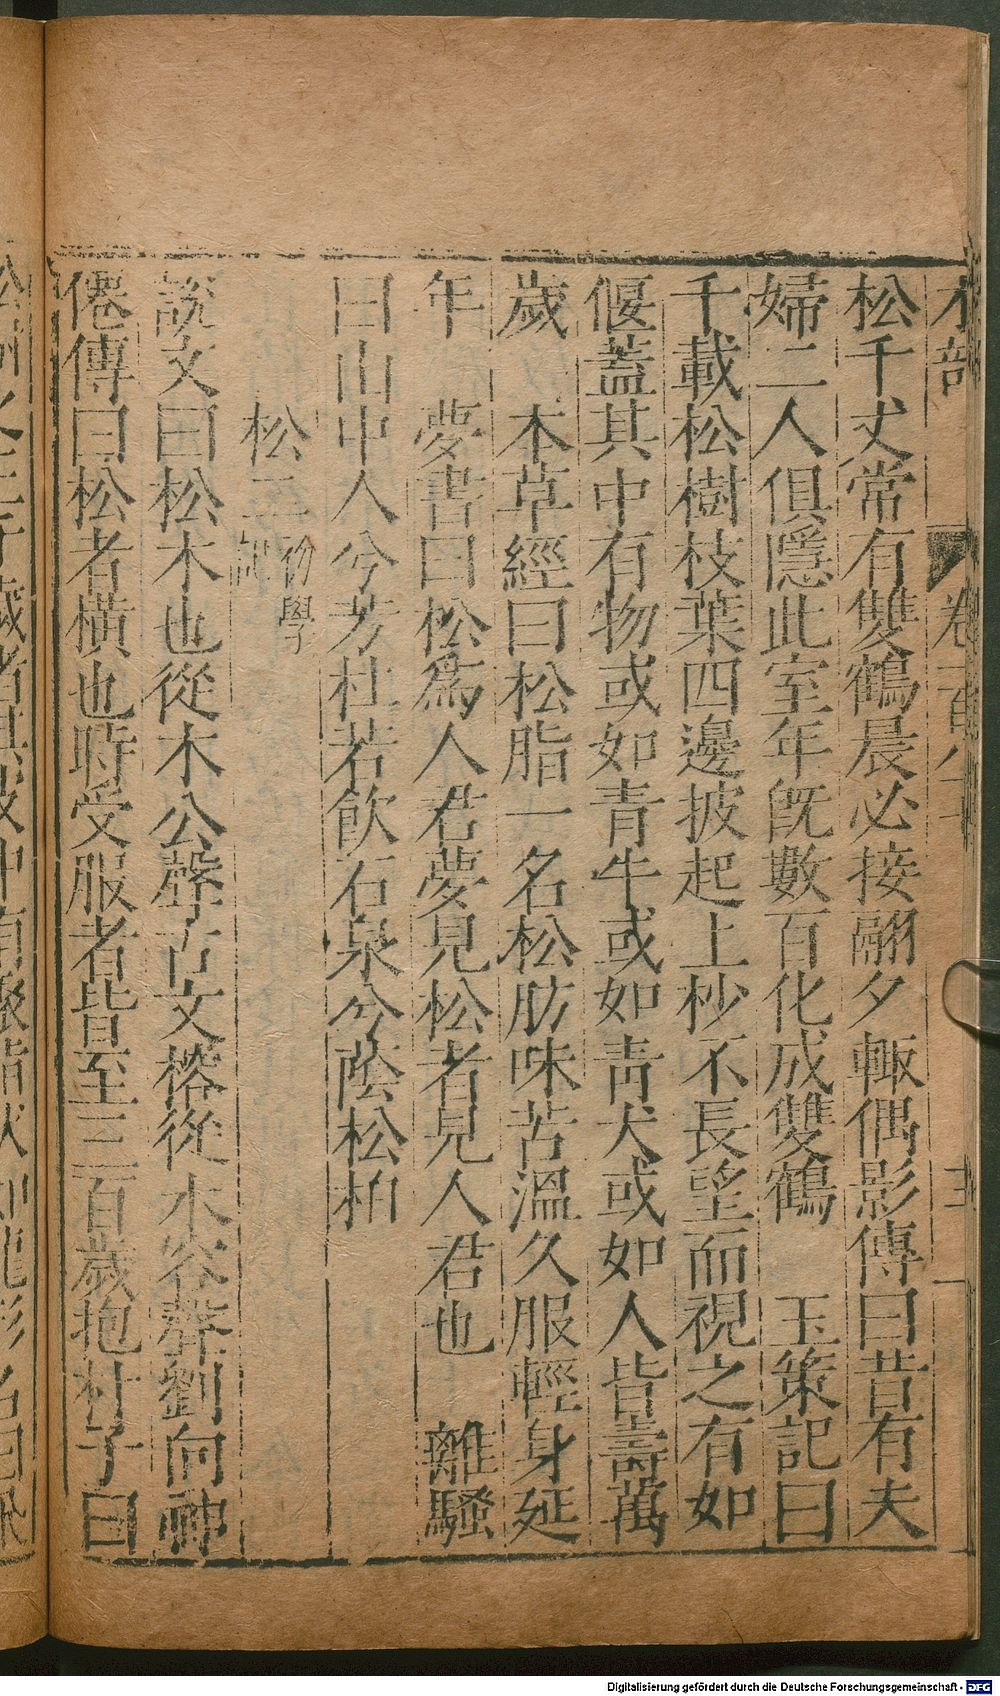 木部　卷一百八十　主
松千丈常有雙鶴晨必接翮夕輙偶影傳曰昔有夫
婦二人俱隱此室年旣數百化成雙鶴　玉策記曰
千載松樹枝葉四邊披起上杪不長望而視之有如
偃蓋其中有物或如青牛或如青犬或如人皆壽萬
歲　本草經曰松脂一名松肪味苦溫久服輕身延
年　夢書曰松爲人君夢見松者見人君也　離騷
曰山中人兮芳杜若飲石泉兮蔭松柏
松二初學記
說文曰松木也從木公聲古文㮤從木容聲劉向神
僊傳曰松者橫也時受服者皆至三百歲抱朴子曰
松樹之三千歲者其皮中有聚脂狀如龍形名曰飛
Digitalisierung gefördert durch die Deutsche Forschungsgemeinschaft - DFG